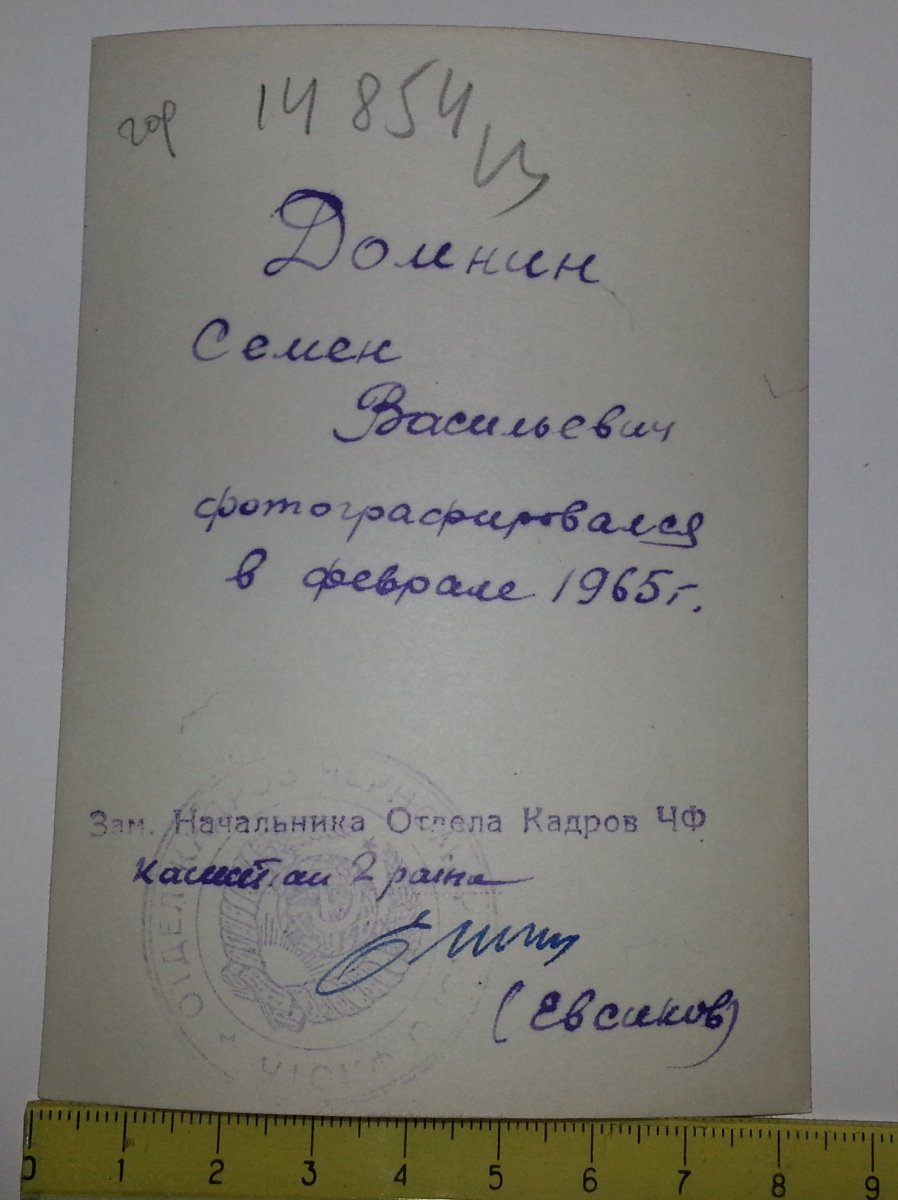 гор 14 854
Домнин
Семен
Васильевич
фотографировался
в феврале 1965 г.
Зам. Начальника Отдела Кадров ЧФ
капитан 2 ранга
(Евсиков)
ОТДЕЛ КАДРОВ ЧЕРНОМ
0 1 2 3 4 5 6 7 8 9